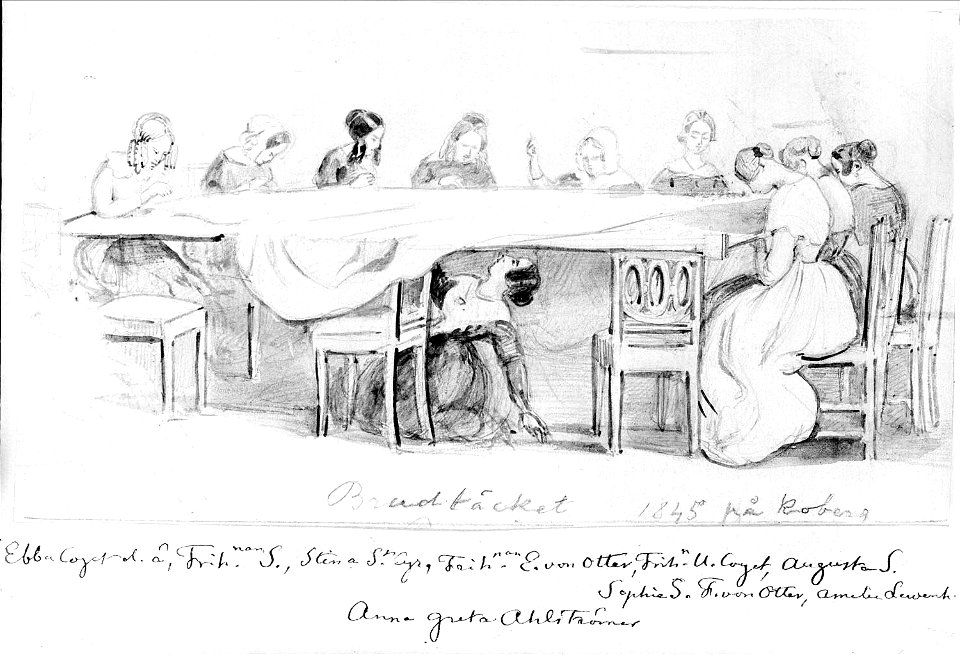 Brudtäcket 1845 på Koberg
Ebba Coyet d. ä, Frih.nan S., Stina S. Frih.nan E. von Otter, Frih.n U. Coyet, Augusta S.
Sophie S. F. von Otter, Amelie Lewenh.
Anna Greta Ahlströmer